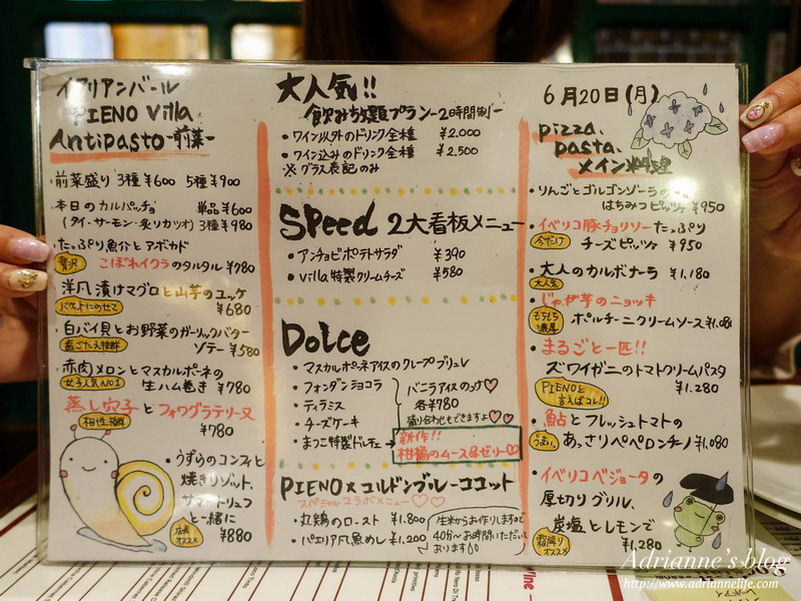 イタリアンバール
PIENO Villa
Antipasto-前菜-
・前菜盛り 3種¥600 5種¥900
・本日のカルパッチョ 単品¥600
(タイ・サーモン・炙りカツオ) 3種¥980
・たっぷり魚介とアボカド
贅沢 こぼれイクラのタルタル ¥780
・洋風漬けマグロと山芋のユッケ
バケットにのせて ¥680
・白バイ貝とお野菜のガーリックバター
歯ごたえ抜群 ソテー ¥580
・赤肉メロンとマスカルポーネの
女子人気No1 生ハム巻き ¥780
・蒸し穴子とフォワグラテリーヌ
相性抜群 ¥780
・うずらのコンフィと
焼きリゾット、
サマートリュフ
と一緒に
店長オススメ ¥880
大人気!!
飲み放題プラン-2時間制-
・ワイン以外のドリンク全種 ¥2,000
・ワイン込みのドリンク全種 ¥2,500
※グラス表記のみ
SPeed 2大看板メニュー
・アンチョビポテトサラダ ¥390
・Villa特製クリームチーズ ¥580
Dolce
・マスカルポーネアイスのクレープブリュレ
・フォンダンショコラ
・ティラミス
・チーズケーキ
・まつこ特製ドルチェ
バニラアイスのっけ♡
各¥780
盛り合わせもできますよ♡
新作!!
柑橘のムース&ゼリー♡
PIENO×コルドンブルーココット
スペシャルコラボメニュー♡♡
・丸鶏のロースト ¥1,800
・パエリア風魚めし ¥1,200
生米からお作りしますので
40分〜お時間いただいて
おります
6月20日(月)
pizza、
pasta、
メイン料理
・りんごとゴルゴンゾーラの
はちみつピッツァ ¥950
・イベリコ豚チョリソーたっぷり
今だけ チーズピッツァ ¥950
・大人のカルボナーラ ¥1,180
大人気
・じゃが芋のニョッキ
もちもち濃厚 ポルチーニクリームソース ¥1,080
・まるごと一匹!!
ズワイガニのトマトクリームパスタ
PIENOと言えばコレ!! ¥1,280
・鮎とフレッシュトマトの
うまい。 あっさりペペロンチーノ ¥1,080
・イベリコベジョータの
厚切りグリル、
炭塩とレモンで
霜降りオススメ ¥1,280
Adrianne's blog
http://www.adriannelife.com/